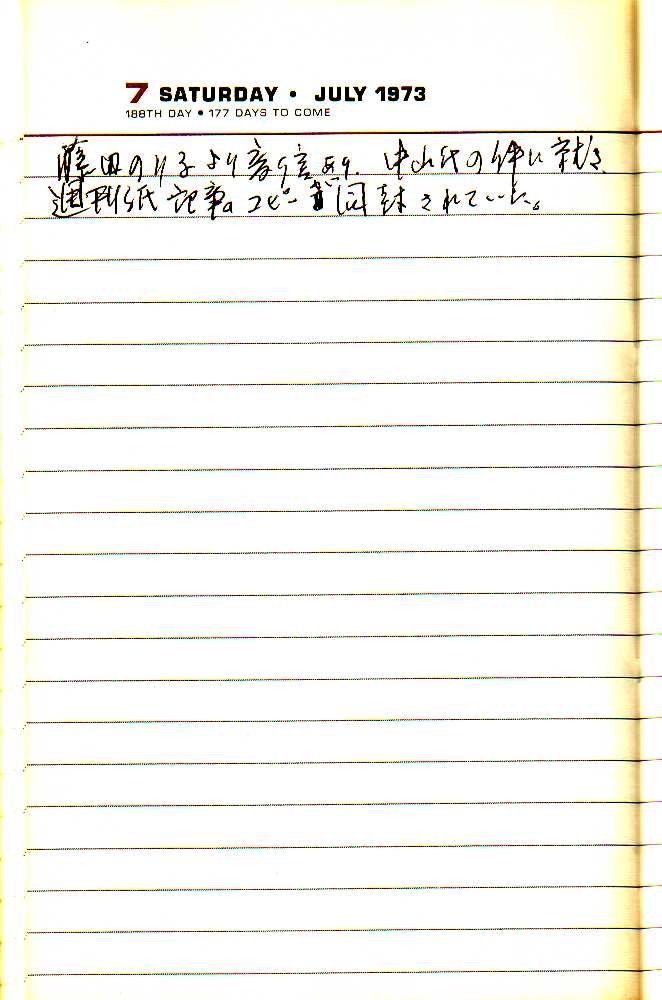 7 SATURDAY • JULY 1973
188TH DAY • 177 DAYS TO COME
藤田のり子より音信あり、中山氏の件に就き、
週刊紙記事のコピー同封されていた。